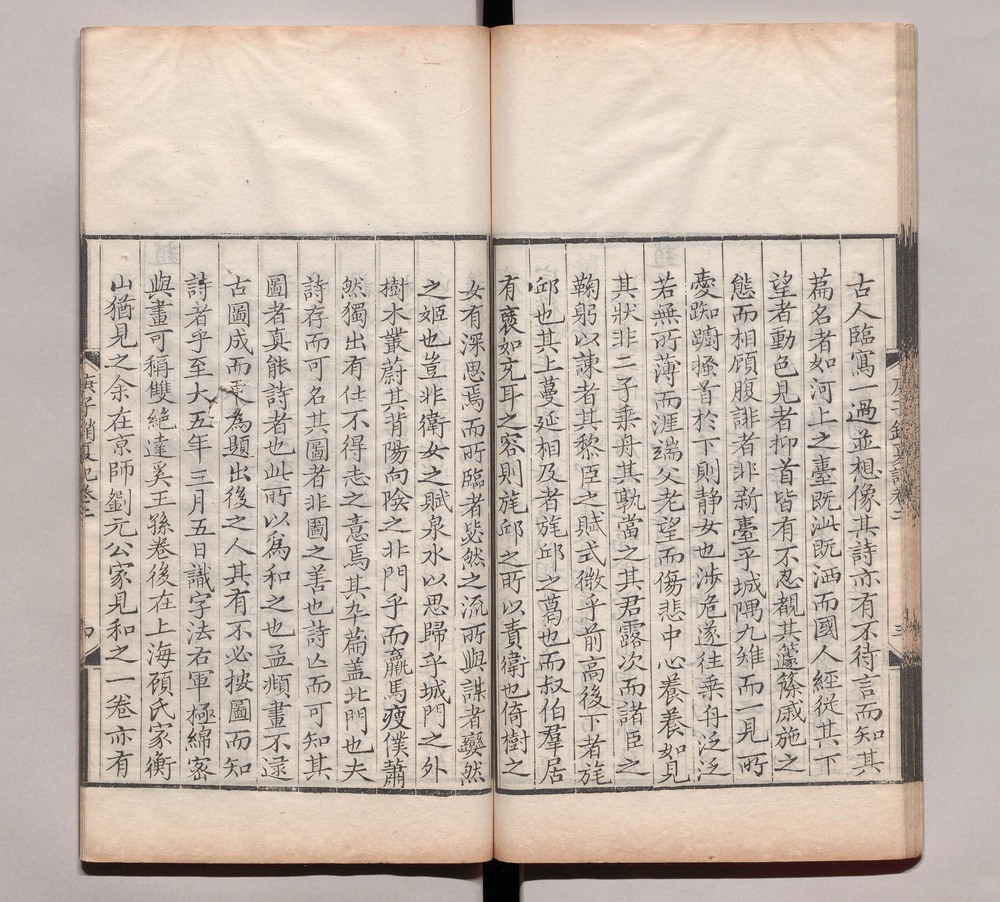 古人臨寫一過並想像其詩亦有不待言而知其
篇名者如河上之臺既泚既洒而國人經從其下
望者動色見者抑首皆有不忍覩其籧篨戚施之
態而相顧腹誹者非新臺乎城隅九雉而一見所
愛踟躕搔首於下則静女也涉危遂往乗舟泛泛
若無所薄而涯端父老望而傷悲中心養養如見
其狀非二子乗舟其孰當之其君露次而諸臣之
鞠躬以諫者其黎臣之賦式微乎前高後下者旄
邱也其上蔓延相及者旄邱之葛也而叔伯羣居
有襃如充耳之容則旄邱之所以責衛也倚樹之
女有深思焉而所臨者毖然之流所與謀者孌然
之姬也豈非衛女之賦泉水以思歸乎城門之外
樹木叢蔚其背陽向陰之北門乎而羸馬瘦僕蕭
然獨出有仕不得志之意焉其卒篇盖北門也夫
詩存而可名其圖者非圖之善也詩亾而可知其
圖者真能詩者也此所以為和之也孟頫畫不逮
古圖成而更為題出後之人其有不必按圖而知
詩者乎至大五年三月五日識字法右軍極綿密
與畫可稱雙絶達吴王孫卷後在上海顧氏家衡
山猶見之余在京師劉元公家見和之一卷亦有
庚子銷夏記卷二
三
庚子銷夏記卷二
四